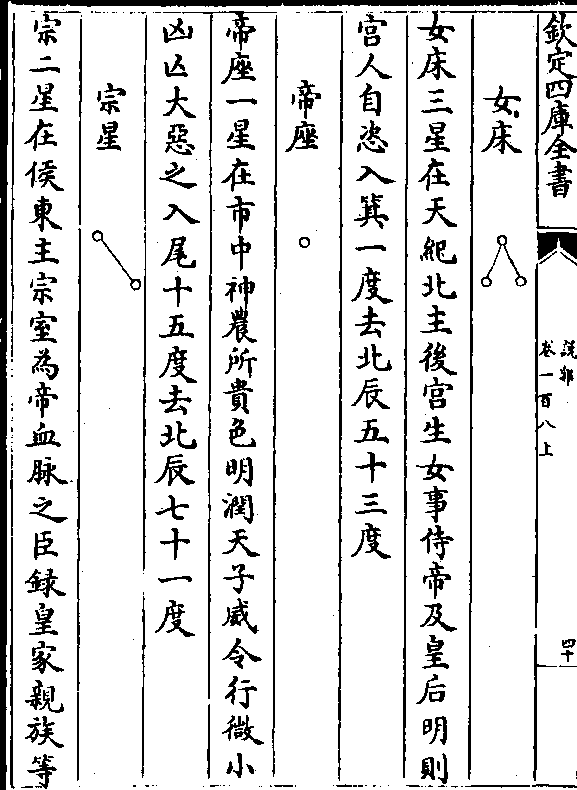 欽定四庫全書
說郛
卷一百八上
四十
女床
女床三星在天紀北主後宮生女事侍帝及皇后明則
宮人自恣入箕一度去北辰五十三度
帝座
帝座一星在市中神農所貴色明潤天子威令行微小
凶亾大惡之入尾十五度去北辰七十一度
宗星
宗二星在侯東主宗室為帝血脉之臣録皇家親族等